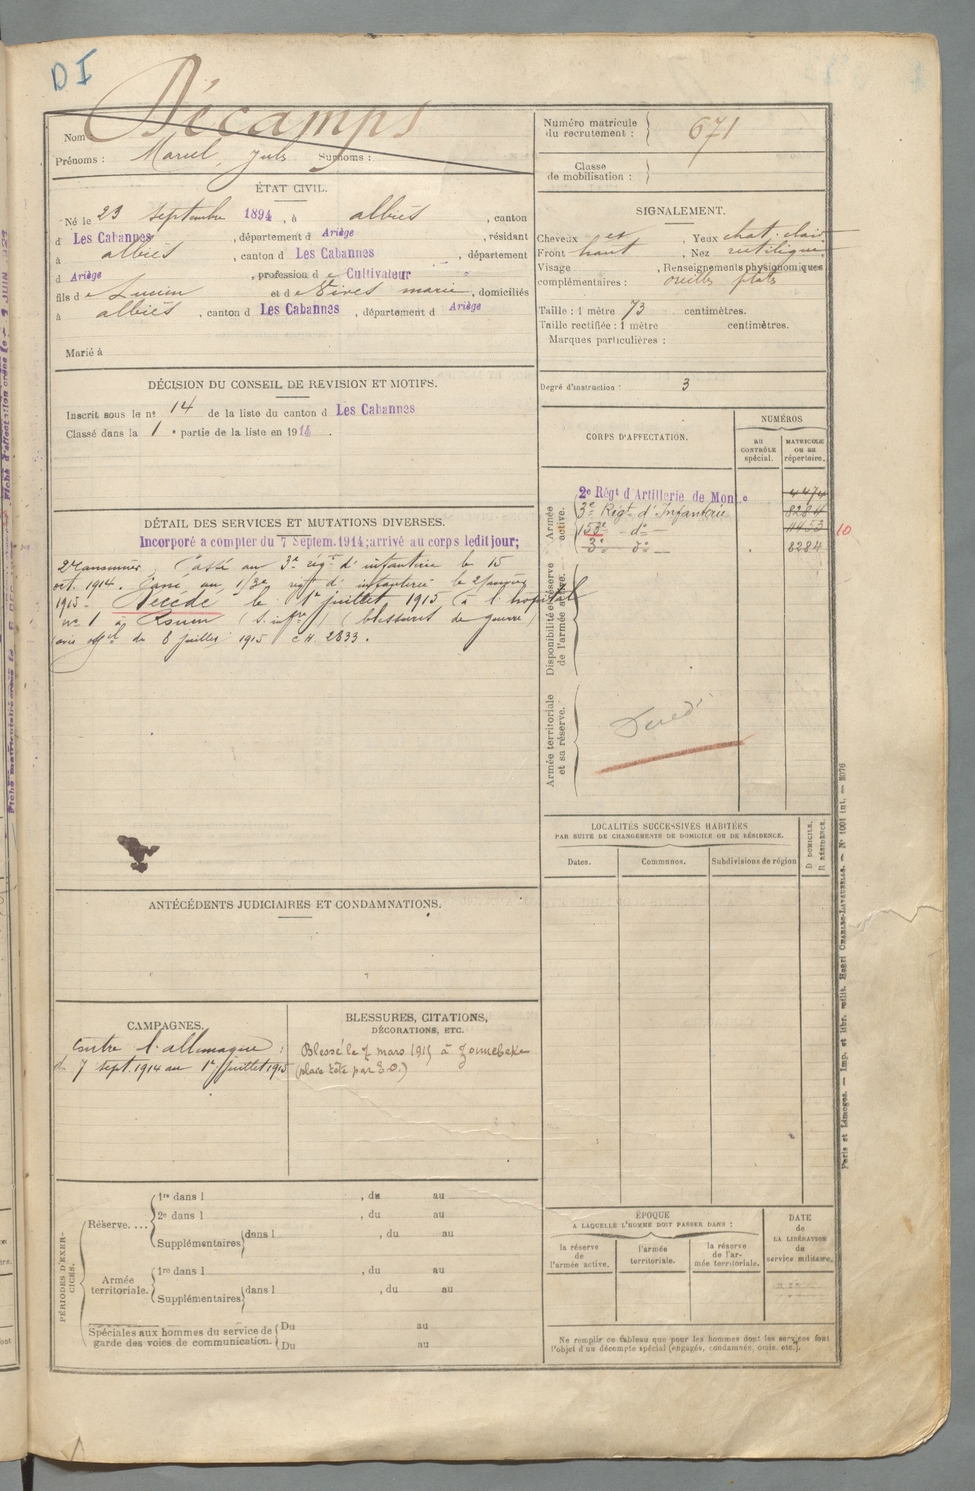 DI
Nom Décamps
Prénoms : Marcel, Jules Surnoms :
ÉTAT CIVIL.
Né le 23 septembre 1894, à albiès, canton
d Les Cabannes, département d Ariège, résidant
à albiès, canton d Les Cabannes, département
d Ariège, profession d e Cultivateur
fils d e Lucien et d e Vives marie, domiciliés
à albiès, canton d Les Cabannes, département d Ariège
Marié à
DÉCISION DU CONSEIL DE REVISION ET MOTIFS.
Inscrit sous le n° 14 de la liste du canton d Les Cabannes
Classé dans la 1e partie de la liste en 1914.
DÉTAIL DES SERVICES ET MUTATIONS DIVERSES.
Incorporé à compter du 7 Septem. 1914; arrivé au corps ledit jour;
2e canonnier. Passé au 3e régt d'infanterie le 15
oct. 1914. Passé au régt d'infanterie le
1915. Décédé le 1er juillet 1915 (à l'hopital
n° 1 à Rouen (blessures de guerre)
(avis offel du 8 juillet 1915 2833.
ANTÉCÉDENTS JUDICIAIRES ET CONDAMNATIONS.
CAMPAGNES.
Contre l'allemagne :
du 7 sept 1914 au 1er juillet 1915
BLESSURES, CITATIONS,
DÉCORATIONS, ETC.
Blessé le 7 mars 1915 à Zonnebeke
(plaie tête par E.O.)
PÉRIODES D'EXERCICES.
Réserve....
1re dans l , du au
2e dans l , du au
Supplémentaires dans l , du au
Armée territoriale.
1re dans l , du au
Supplémentaires dans l , du au
Spéciales aux hommes du service de garde des voies de communication.
Du au
Du au
Numéro matricule du recrutement : 671
Classe de mobilisation :
SIGNALEMENT.
Cheveux , Yeux chat. clair
Front haut , Nez rectiligne
Visage , Renseignements physionomiques
complémentaires : oreilles plates
Taille : 1 mètre 73 centimètres.
Taille rectifiée : 1 mètre centimètres.
Marques particulières :
Degré d'instruction : 3
CORPS D'AFFECTATION.
NUMÉROS
AU CONTRÔLE spécial.
MATRICULE OU AU répertoire.
Armée active.
2e Régt d'Artillerie de Mont.e 4474
3e Régt d'Infanterie 8284
153e - do - 11453 10
3e do - 8284
Disponibilité et réserve de l'armée active.
Armée territoriale et sa réserve.
LOCALITÉS SUCCESSIVES HABITÉES
PAR SUITE DE CHANGEMENTS DE DOMICILE OU DE RÉSIDENCE.
Dates.
Communes.
Subdivisions de région
D DOMICILE.
R RÉSIDENCE.
ÉPOQUE
A LAQUELLE L'HOMME DOIT PASSER DANS :
la réserve de l'armée active.
l'armée territoriale.
la réserve de l'armée territoriale.
DATE de LA LIBÉRATION du service militaire.
Ne remplir ce tableau que pour les hommes dont les services font
l'objet d'un décompte spécial (engagés, condamnés, omis, etc.).
Paris et Limoges. — Imp. et libr. milit. Henri CHARLES-LAVAUZELLE. — N° 1001 int. — 8076